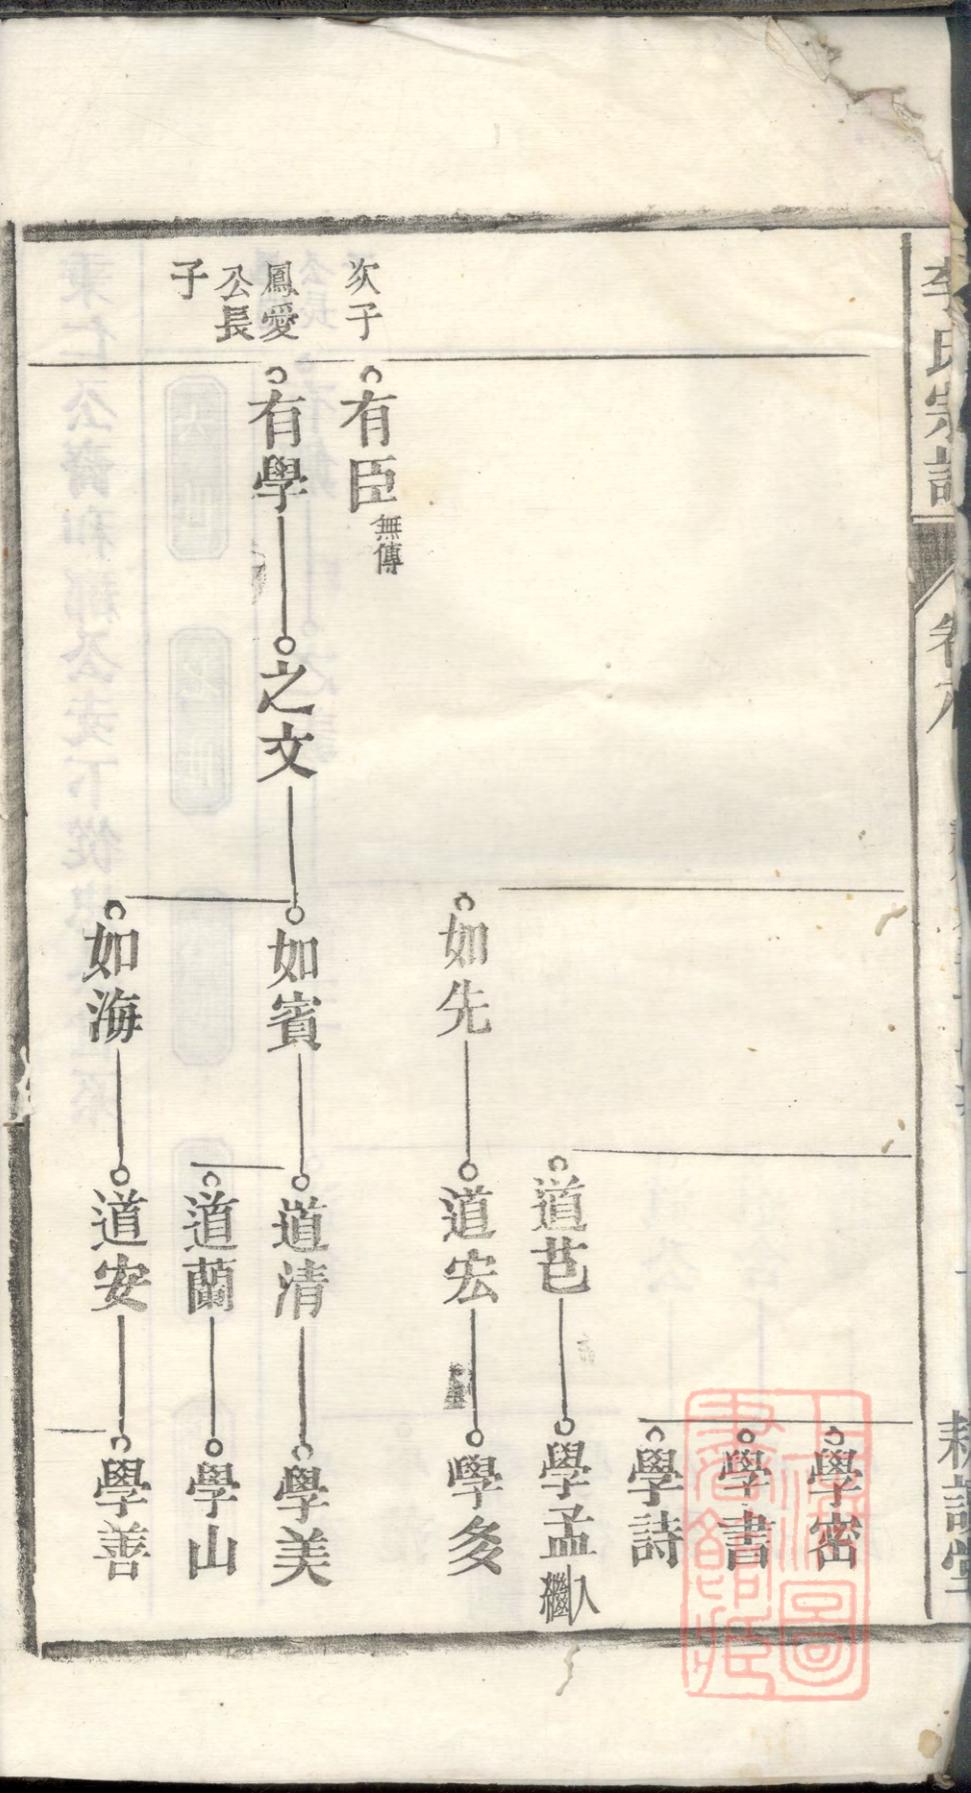 李氏宗譜
卷八
耕讀堂
次子
有臣
無傳
鳳愛
公長
子
有學
之文
如先
如賓
如海
道芑
道宏
道清
道蘭
道安
學密
學書
學詩
學孟
入
繼
學多
學美
學山
學善
上海圖
書館藏